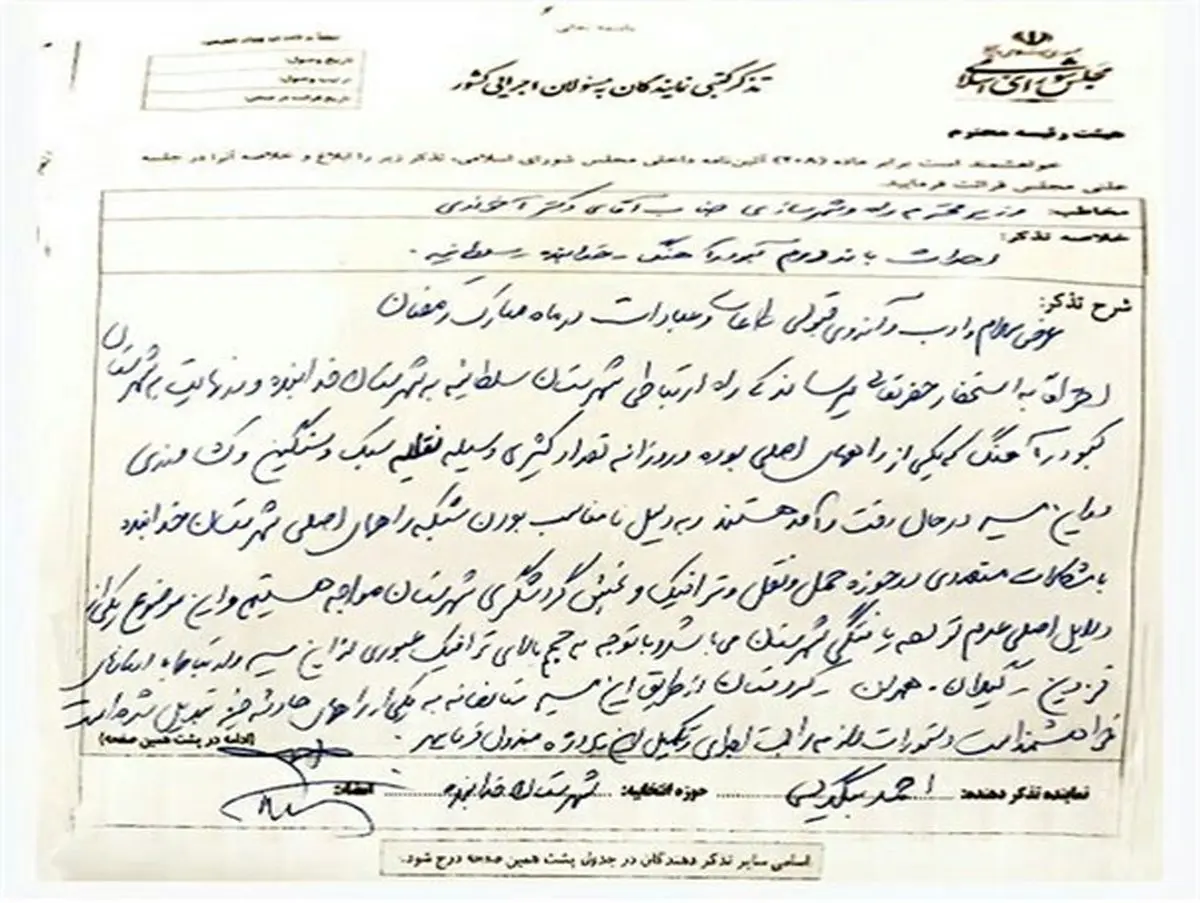 باسمه تعالی
مجلس شورای اسلامی
تذکر کتبی نمایندگان به مسئولان اجرایی کشور
تاریخ وصول:
ترتیب وصول:
تاریخ قرائت در صحن:
هیئت رئیسه محترم
خواهشمند است برابر ماده (۲۰۸) آئین‌نامه داخلی مجلس شورای اسلامی، تذکر زیر را ابلاغ و خلاصه آنرا در جلسه
علنی مجلس قرائت فرمایید.
مخاطب: وزیر محترم راه و شهرسازی جناب آقای دکتر آخوندی
خلاصه تذکر:
احداث باند دوم کبودرآهنگ - خدابنده - سلطانیه.
شرح تذکر:
عرض سلام و ادب و آرزوی قبولی طاعات و عبادات در ماه مبارک رمضان
احتراماً به استحضار حضرتعالی میرساند که راه ارتباطی شهرستان سلطانیه به شهرستان خدابنده و در نهایت به شهرستان
کبودرآهنگ که یکی از راههای اصلی بوده و روزانه تعداد کثیری وسیله نقلیه سبک و سنگین و کشاورزی
در این مسیر در حال رفت و آمد هستند و به دلیل نامناسب بودن شبکه راههای اصلی شهرستان خدابنده
با مشکلات متعددی در حوزه حمل و نقل و ترافیک و بخش گردشگری شهرستان مواجه هستیم و این موضوع یکی از
دلایل اصلی عدم توسعه یافتگی شهرستان می باشد و با توجه به حجم بالای ترافیک عبوری از این مسیر و ارتباط با استانهای
قزوین - گیلان - همدان - کردستان از طریق این مسیر متاسفانه به یکی از راههای حادثه خیز تبدیل شده است
خواهشمند است دستورات لازم را جهت اجرای و تکمیل این پروژه مبذول فرمایید.
(ادامه در پشت همین صفحه)
نماینده تذکر دهنده: احمد بیگدلی حوزه انتخابیه: شهرستان خدابنده امضاء:
اسامی سایر تذکر دهندگان در جدول پشت همین صفحه درج شود.